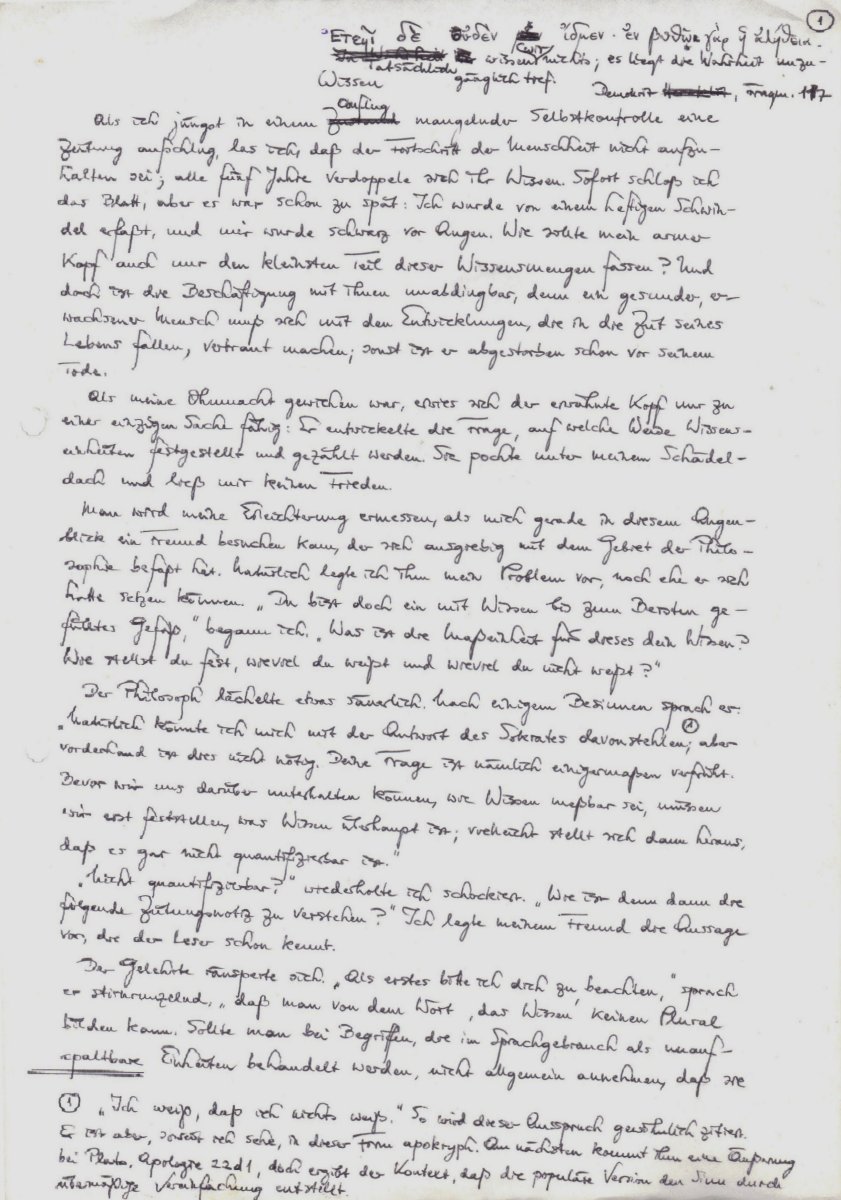 1
Ἐτεῇ δὲ οὐδὲν ἴδμεν· ἐν βυθῷ γὰρ ἡ ἀλήθεια.
Tatsächlich wissen wir nichts; es liegt die Wahrheit unzu-
gänglich tief.
Demokrit, Fragm. 117
Wissen
Als ich jüngst in einem Anflug mangelnder Selbstkontrolle eine
Zeitung aufschlug, las ich, daß der Fortschritt der Menschheit nicht aufzu-
halten sei; alle fünf Jahre verdoppele sich ihr Wissen. Sofort schloß ich
das Blatt, aber es war schon zu spät: Ich wurde von einem heftigen Schwin-
del erfaßt, und mir wurde schwarz vor Augen. Wie sollte mein armer
Kopf auch nur den kleinsten Teil dieser Wissensmengen fassen? Und
doch ist die Beschäftigung mit ihnen unabdingbar, denn ein gesunder, er-
wachsener Mensch muß sich mit den Entwicklungen, die in die Zeit seines
Lebens fallen, vertraut machen; sonst ist er abgestorben schon vor seinem
Tode.
Als meine Ohnmacht gewichen war, erwies sich der erwähnte Kopf nur zu
einer einzigen Sache fähig: Er entwickelte die Frage, auf welche Weise Wissens-
einheiten festgestellt und gezählt werden. Sie pochte unter meinem Schädel-
dach und ließ mir keinen Frieden.
Man wird meine Erleichterung ermessen, als mich gerade in diesem Augen-
blick ein Freund besuchen kam, der sich ausgiebig mit dem Gebiet der Philo-
sophie befaßt hat. Natürlich legte ich ihm mein Problem vor, noch ehe er sich
hätte setzen können. „Du bist doch ein mit Wissen bis zum Bersten ge-
fülltes Gefäß," begann ich. „Was ist die Maßeinheit für dieses dein Wissen?
Wie stellst du fest, wieviel du weißt und wieviel du nicht weißt?"
Der Philosoph lächelte etwas säuerlich. Nach einigem Besinnen sprach er:
„Natürlich könnte ich mich mit der Antwort des Sokrates davonstehlen①; aber
vorderhand ist dies nicht nötig. Deine Frage ist nämlich einigermaßen verfrüht.
Bevor wir uns darüber unterhalten können, wie Wissen meßbar sei, müssen
wir erst feststellen, was Wissen überhaupt ist; vielleicht stellt sich dann heraus,
daß es gar nicht quantifizierbar ist."
„Nicht quantifizierbar?" wiederholte ich schockiert. „Wie ist denn dann die
folgende Zeitungsnotiz zu verstehen?" Ich legte meinem Freund die Aussage
vor, die der Leser schon kennt.
Der Gelehrte räusperte sich. „Als erstes bitte ich dich zu beachten," sprach
er stirnrunzelnd, „daß man von dem Wort ‚das Wissen' keinen Plural
bilden kann. Sollte man bei Begriffen, die im Sprachgebrauch als unauf-
spaltbare Einheiten behandelt werden, nicht allgemein annehmen, daß sie
① „Ich weiß, daß ich nichts weiß." So wird dieser Ausspruch gewöhnlich zitiert.
Er ist aber, soweit ich sehe, in dieser Form apokryph. Am nächsten kommt ihm eine Äußerung
bei Plato, Apologie 22d1, doch ergibt der Kontext, daß die populäre Version den Sinn durch
übermäßige Vereinfachung entstellt.